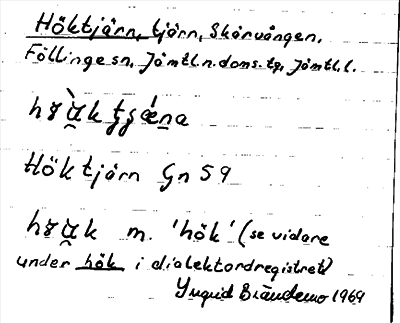 Höktjärn, tjärn, Skärvången.
Föllinge sn, Jämtl. n. doms. tg, Jämtl. l.
Höktjärn Gn 59
m. 'hök' (se vidare
under hök i dialektordregistret)
Ingrid Brändemo 1969